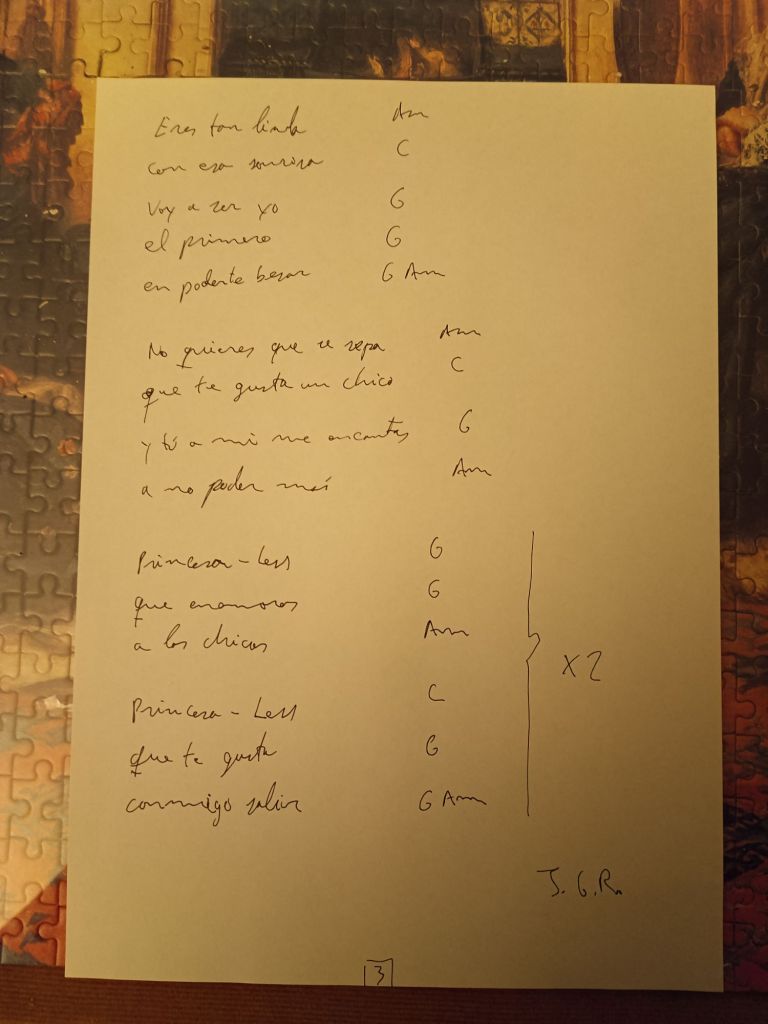 Eres tan linda Am
con esa sonrisa C
Voy a ser yo G
el primero G
en poderte besar G Am
No quieres que se sepa Am
que te gusta un chico C
y tú a mi me encantas G
a no poder más Am
Princesa - Less G
que enamoras G
a los chicos Am
Princesa - Less C
que te gusta G
conmigo salir G Am
x2
J.G.R.
3